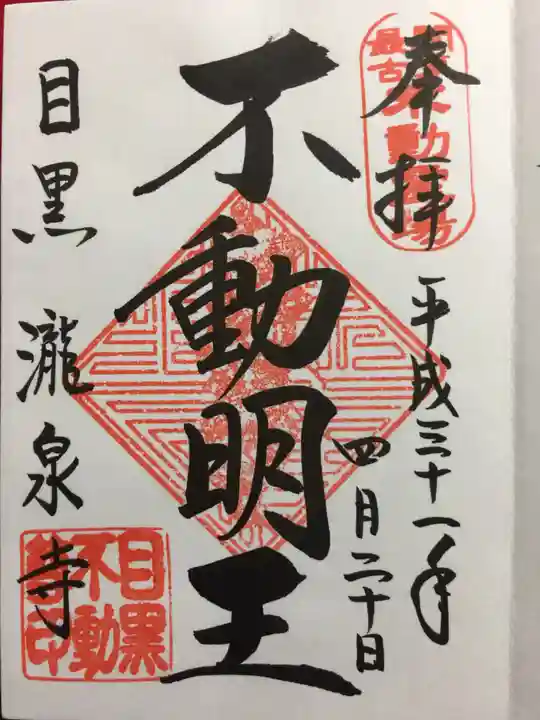 奉拝
関最古不動霊場
平成三十一年
四月二十日
不動明王
目黒瀧泉寺
目黒不動